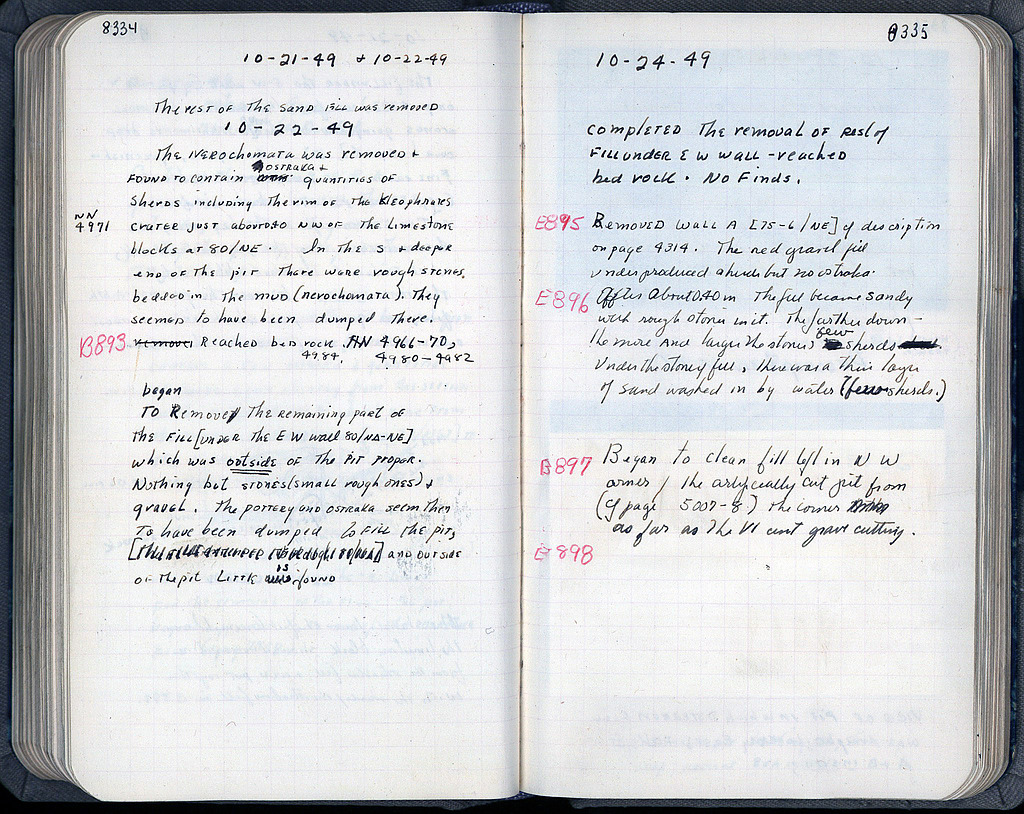 8334
10-21-49 + 10-22-49
The rest of The sand fill was removed
10-22-49
The Nerochomata was removed +
ostraka +
found to contain quantities of
Sherds including The rim of The Kleophrades
NN
4971
crater just about 0.40 NW of The limestone
blocks at 80/NE. In The S + deeper
end of The pit There were rough stones,
bedded in The mud (nerochomata). They
seemed to have been dumped There.
B893
removed Reached bed rock. NN 4966-70,
4984, 4980-4982
began
To Remove The remaining part of
The fill [under The E W wall 80/NA-NE]
which was outside of The pit proper.
Nothing but stones (small rough ones) +
gravel. The pottery and ostraka seem Then
To have been dumped to fill The pit,
and outside
is
of the pit little found
8335
10-24-49
completed The removal of rest of
fill under E W wall - reached
bed rock. No Finds.
E895
Removed Wall A [75-6/NE] cf description
on page 4314. The red gravel fill
under produced sherds but no ostraka.
E896
After About 0.40 m The fill became sandy
with rough stones in it. The farther down -
few
the more and larger the stones sherds
Under the stoney fill, there was a thin layer
of sand washed in by water (few sherds.)
B897
Began to clean fill left in N W
corner of the artificially cut pit from
(cf page 5007-8) the corner
as far as The VI cent grave cutting.
E898